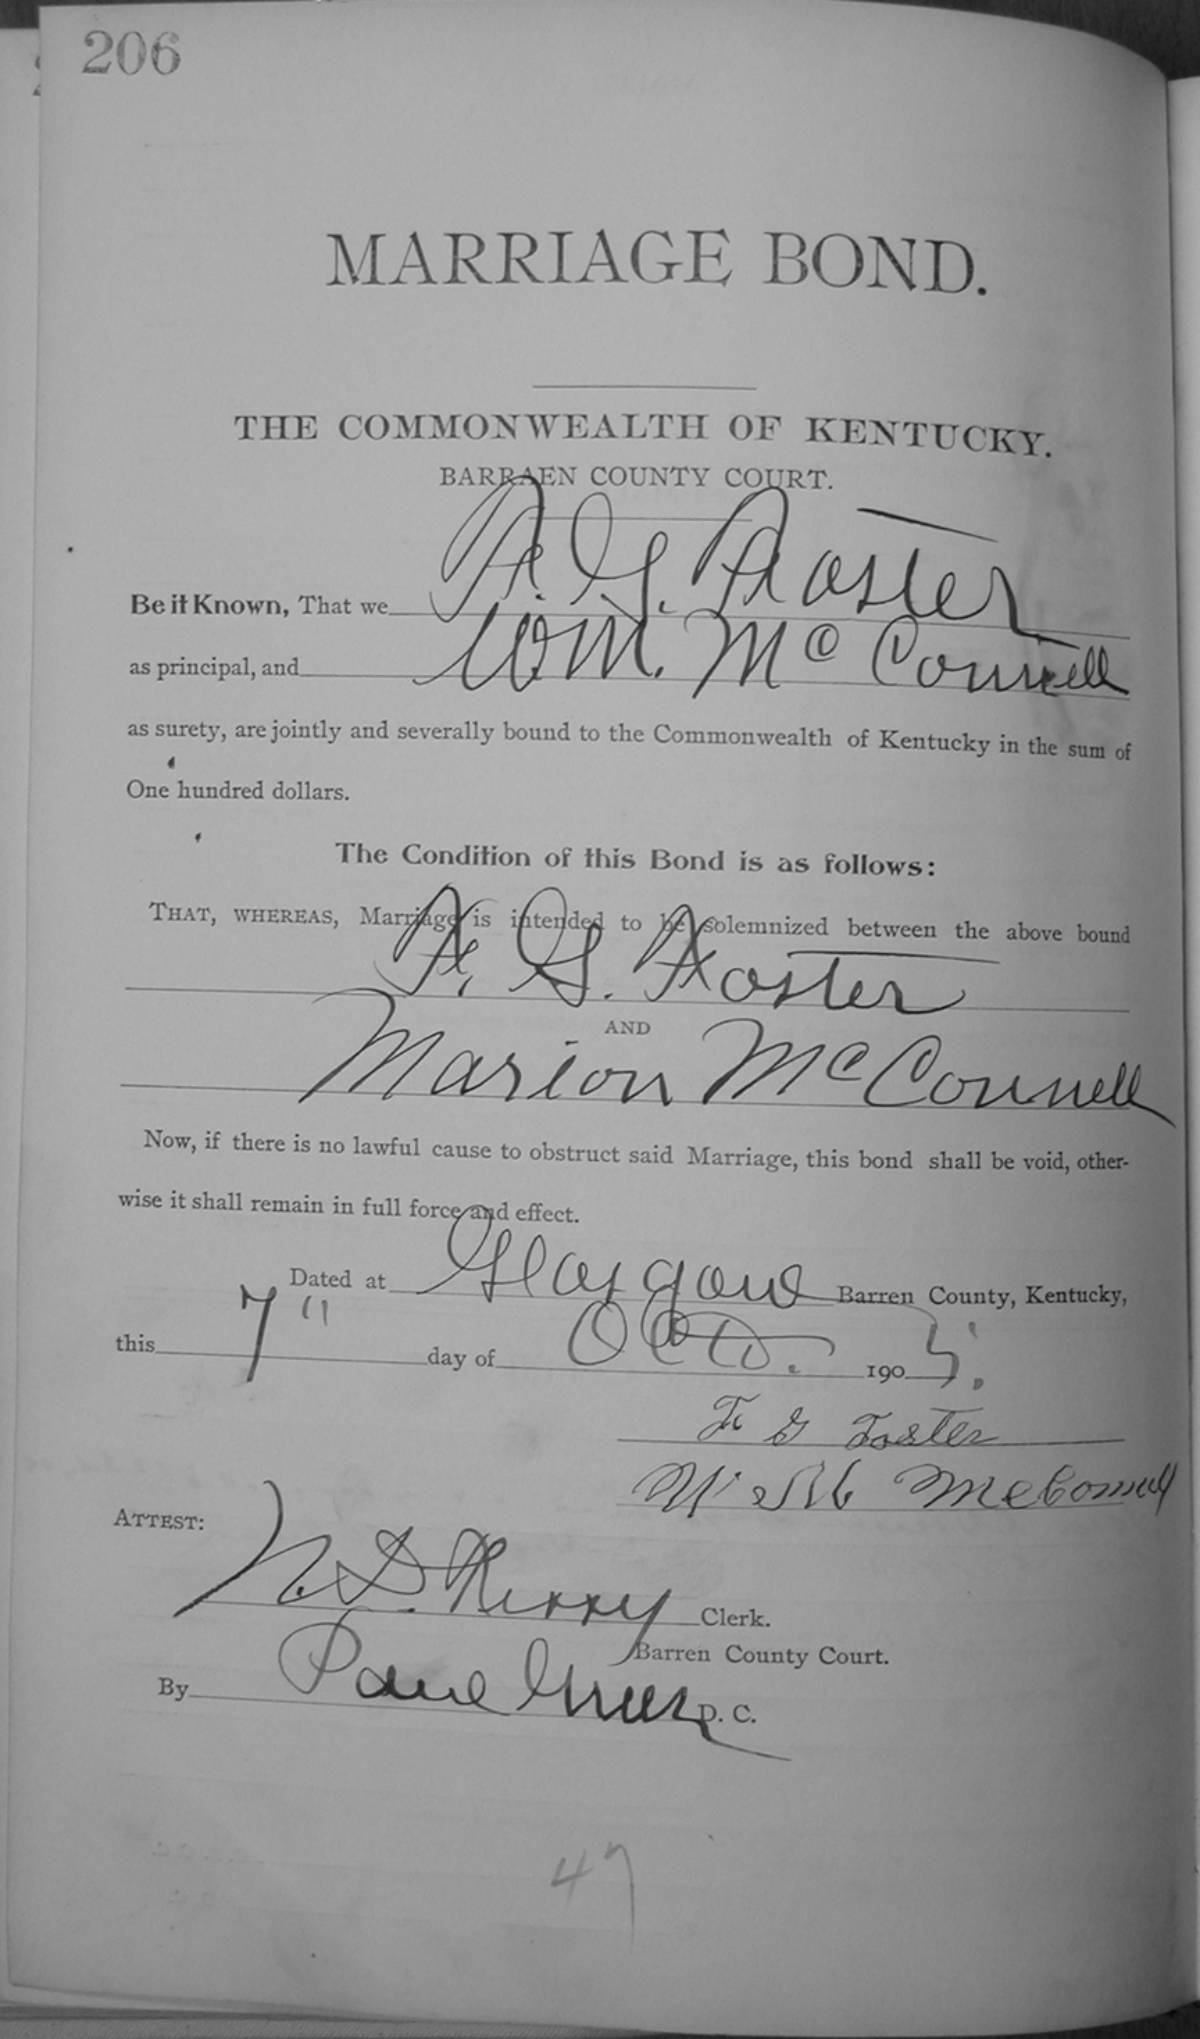 206
MARRIAGE BOND.
THE COMMONWEALTH OF KENTUCKY.
BARRAEN COUNTY COURT.
Be it Known, That we F. G. Foster
as principal, and Wm. McConnell
as surety, are jointly and severally bound to the Commonwealth of Kentucky in the sum of
One hundred dollars.
The Condition of this Bond is as follows:
THAT, WHEREAS, Marriage is intended to be solemnized between the above bound
F. G. Foster
AND
Marion McConnell
Now, if there is no lawful cause to obstruct said Marriage, this bond shall be void, other-
wise it shall remain in full force and effect.
Dated at Glasgow Barren County, Kentucky,
this 7" day of Octo. 1905.
F G Foster
McConnell
ATTEST:
Clerk.
Barren County Court.
By D. C.
47